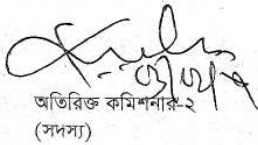 অতিরিক্ত কমিশনার-২
(সদস্য)